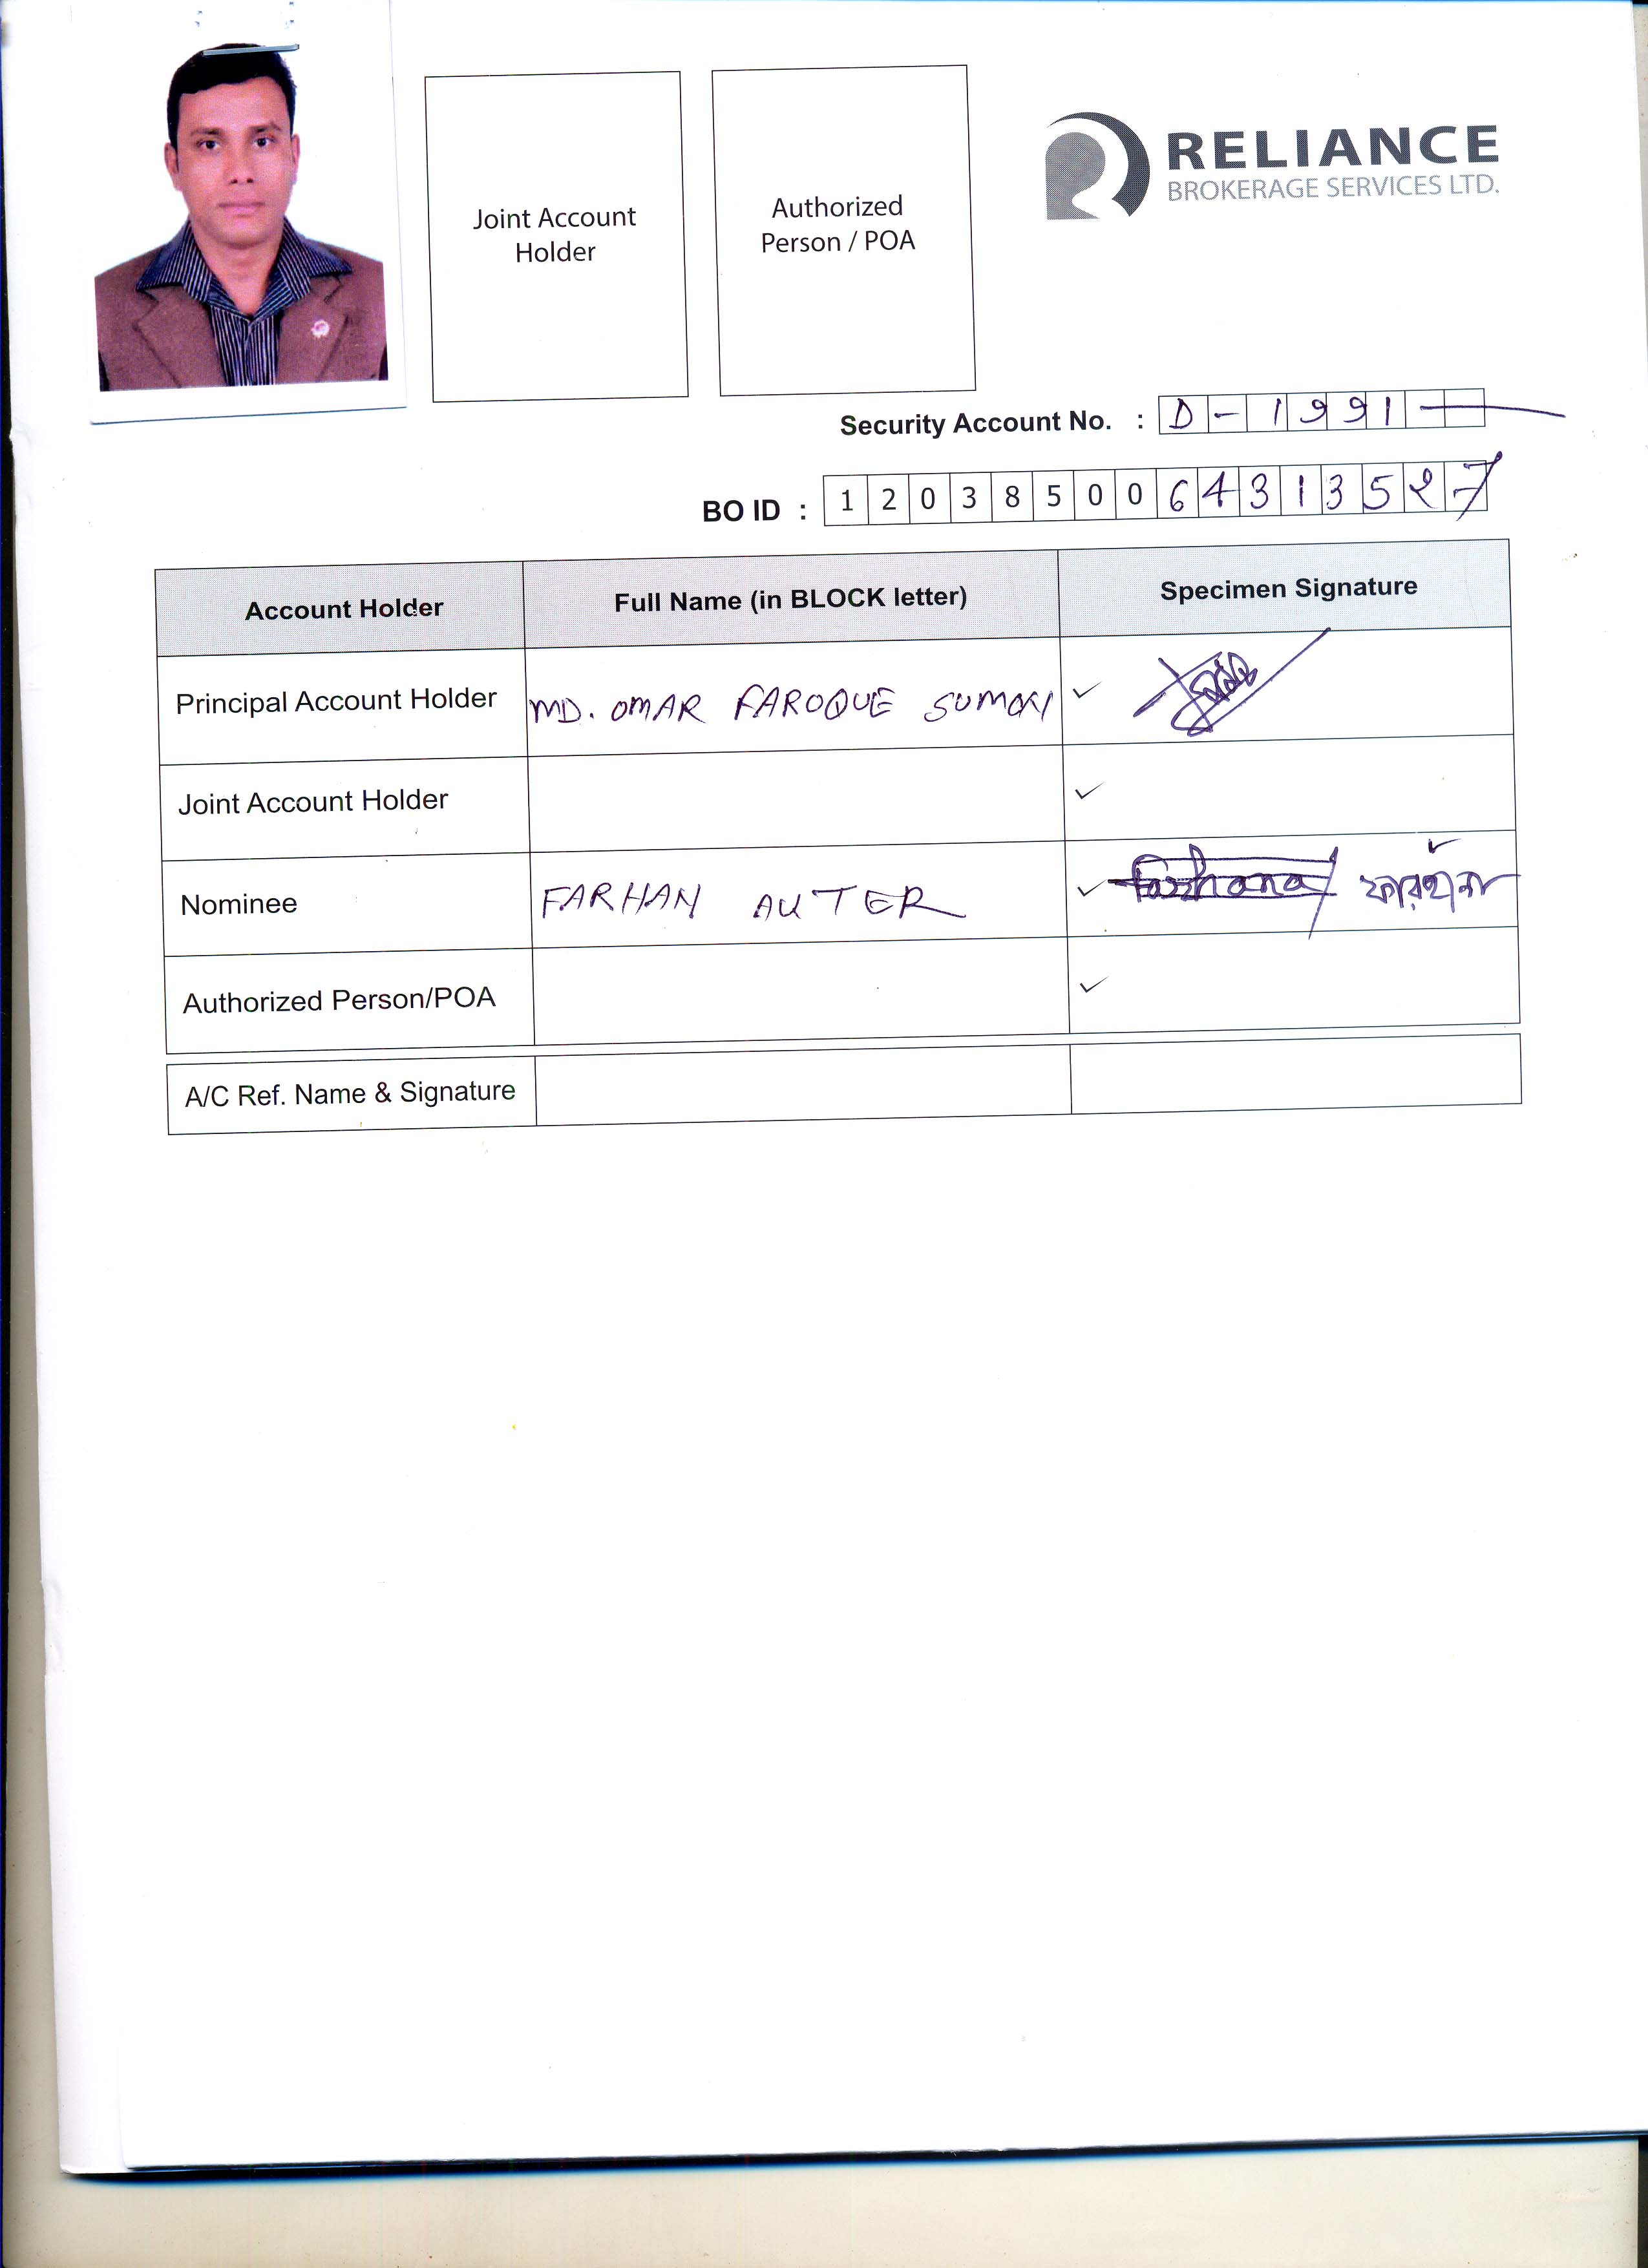 Joint Account
Holder
Authorized
Person / POA
RELIANCE
BROKERAGE SERVICES LTD.
Security Account No. : D - 1991
BO ID : 1 2 0 3 8 5 0 0 6 4 3 1 3 5 2 7
Account Holder Full Name (in BLOCK letter) Specimen Signature
Principal Account Holder MD. OMAR FAROQUE SUMON
Joint Account Holder
Nominee FARHAN AUTER Farhana ফারহানা
Authorized Person/POA
A/C Ref. Name & Signature